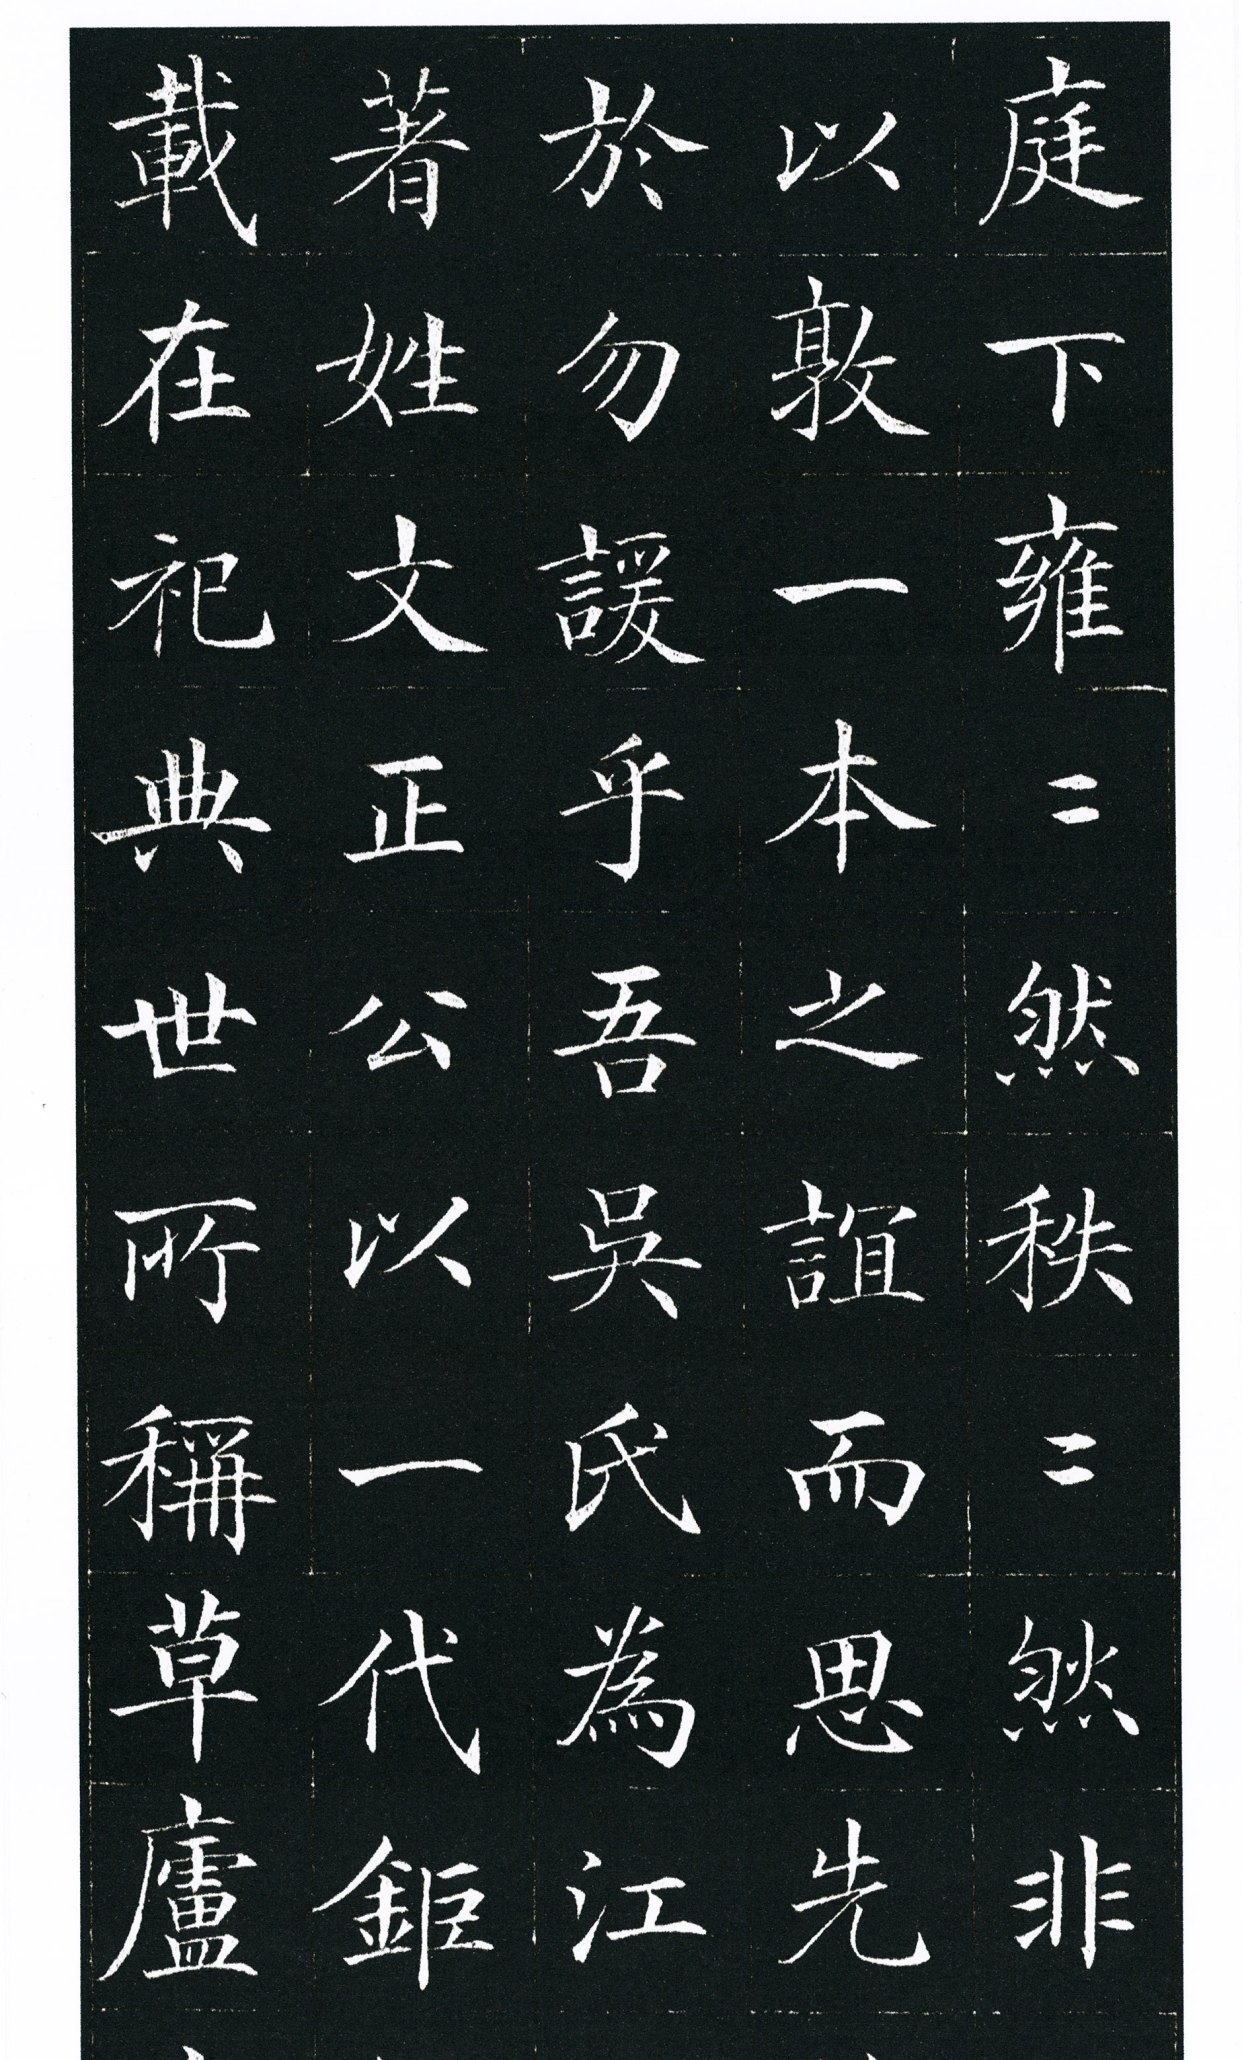 庭下雍〻然秩〻然非
以敦一本之誼而思先
於勿諼乎吾吳氏為江
著姓文正公以一代鉅
載在祀典世所稱草廬